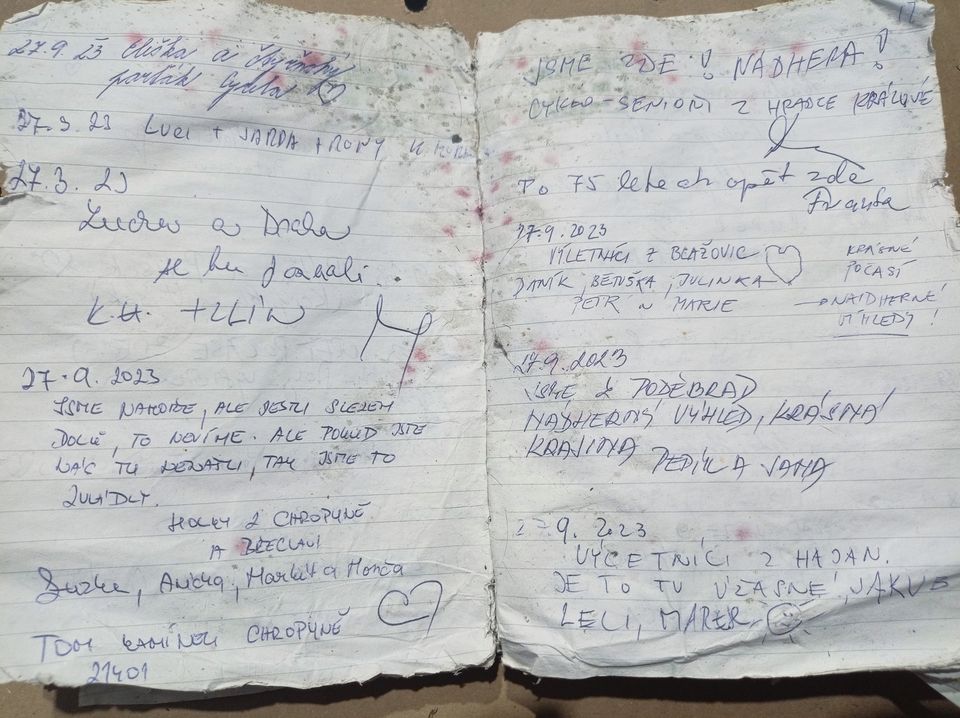 27.9 23 Eliška a čtyřnohý
parťák
27.9.23 LUCI + JARDA + RONY
27.9.23
a
K.H. + ZLÍN
27.9.2023
JSME NAHOŘE, ALE JESTLI SLEZEM
DOLŮ, TO NEVÍME. ALE POKUD JSTE
NÁS TU NENAŠLI, TAK JSME TO
ZVLÁDLY.
HOLKY Z CHROPYNĚ
A BŘECLAVI
Zuzka, Anička, Markét a Monča
TOM KAMÍNEK CHROPYNĚ
21401
17
JSME ZDE! NÁDHERA!
CYKLO-SENIOŘI Z HRADCE KRÁLOVÉ
Po 75 letech opět zde
Franta
27.9.2023
VÝLETNÍCI Z BLAŽOVIC
DANÍK, BĚTUŠKA, JULINKA
PETR a MARIE
KRÁSNÉ
POČASÍ
NÁDHERNÉ
VÝHLEDY!
27.9.2023
JSME Z PODĚBRAD
NÁDHERNÝ VÝHLED, KRÁSNÁ
KRAJINA
PEPÍK A JANA
27.9. 2023
VÝLETNÍCI Z HAJAN.
JE TO TU ÚŽASNÉ! JAKUB
LELI, MAREK